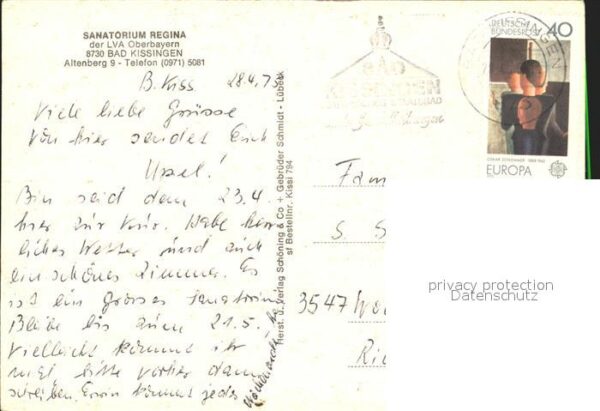 SANATORIUM REGINA
der LVA Oberbayern
8730 BAD KISSINGEN
Altenberg 9 - Telefon (0971) 5081
B. Kiss 28.4.75
Viele liebe Grüsse
von hier sendet Euch
Bin seid dem 23.4.
hier zur Kur. Habe herr
liches Wetter und auch
ein schönes Zimmer. Es
ist ein grosses Sanatorium
Bleibe bis zum 21.5.
Vielleicht kommt ihr
mal bitte vorher dann
schreiben. Erwin kommt jedes
Wochenende
Herst. u. Verlag Schöning & Co + Gebrüder Schmidt - Lübeck
Bestellnr. Kissi 794
BAD
KISSINGEN
DEUTSCHE
BUNDESPOST
40
OSKAR SCHLEMMER 1888-1943
EUROPA
Fam
S S
3547 Wo
privacy protection
Datenschutz